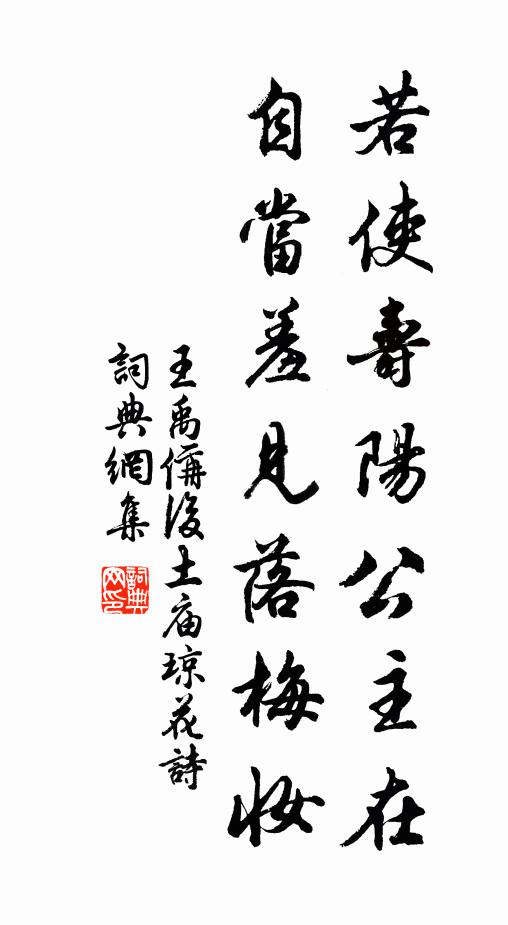 若使壽陽公主在
自當羞見落梅妝
王禹偁後土庙琼花詩
詞典網集
詞典网印